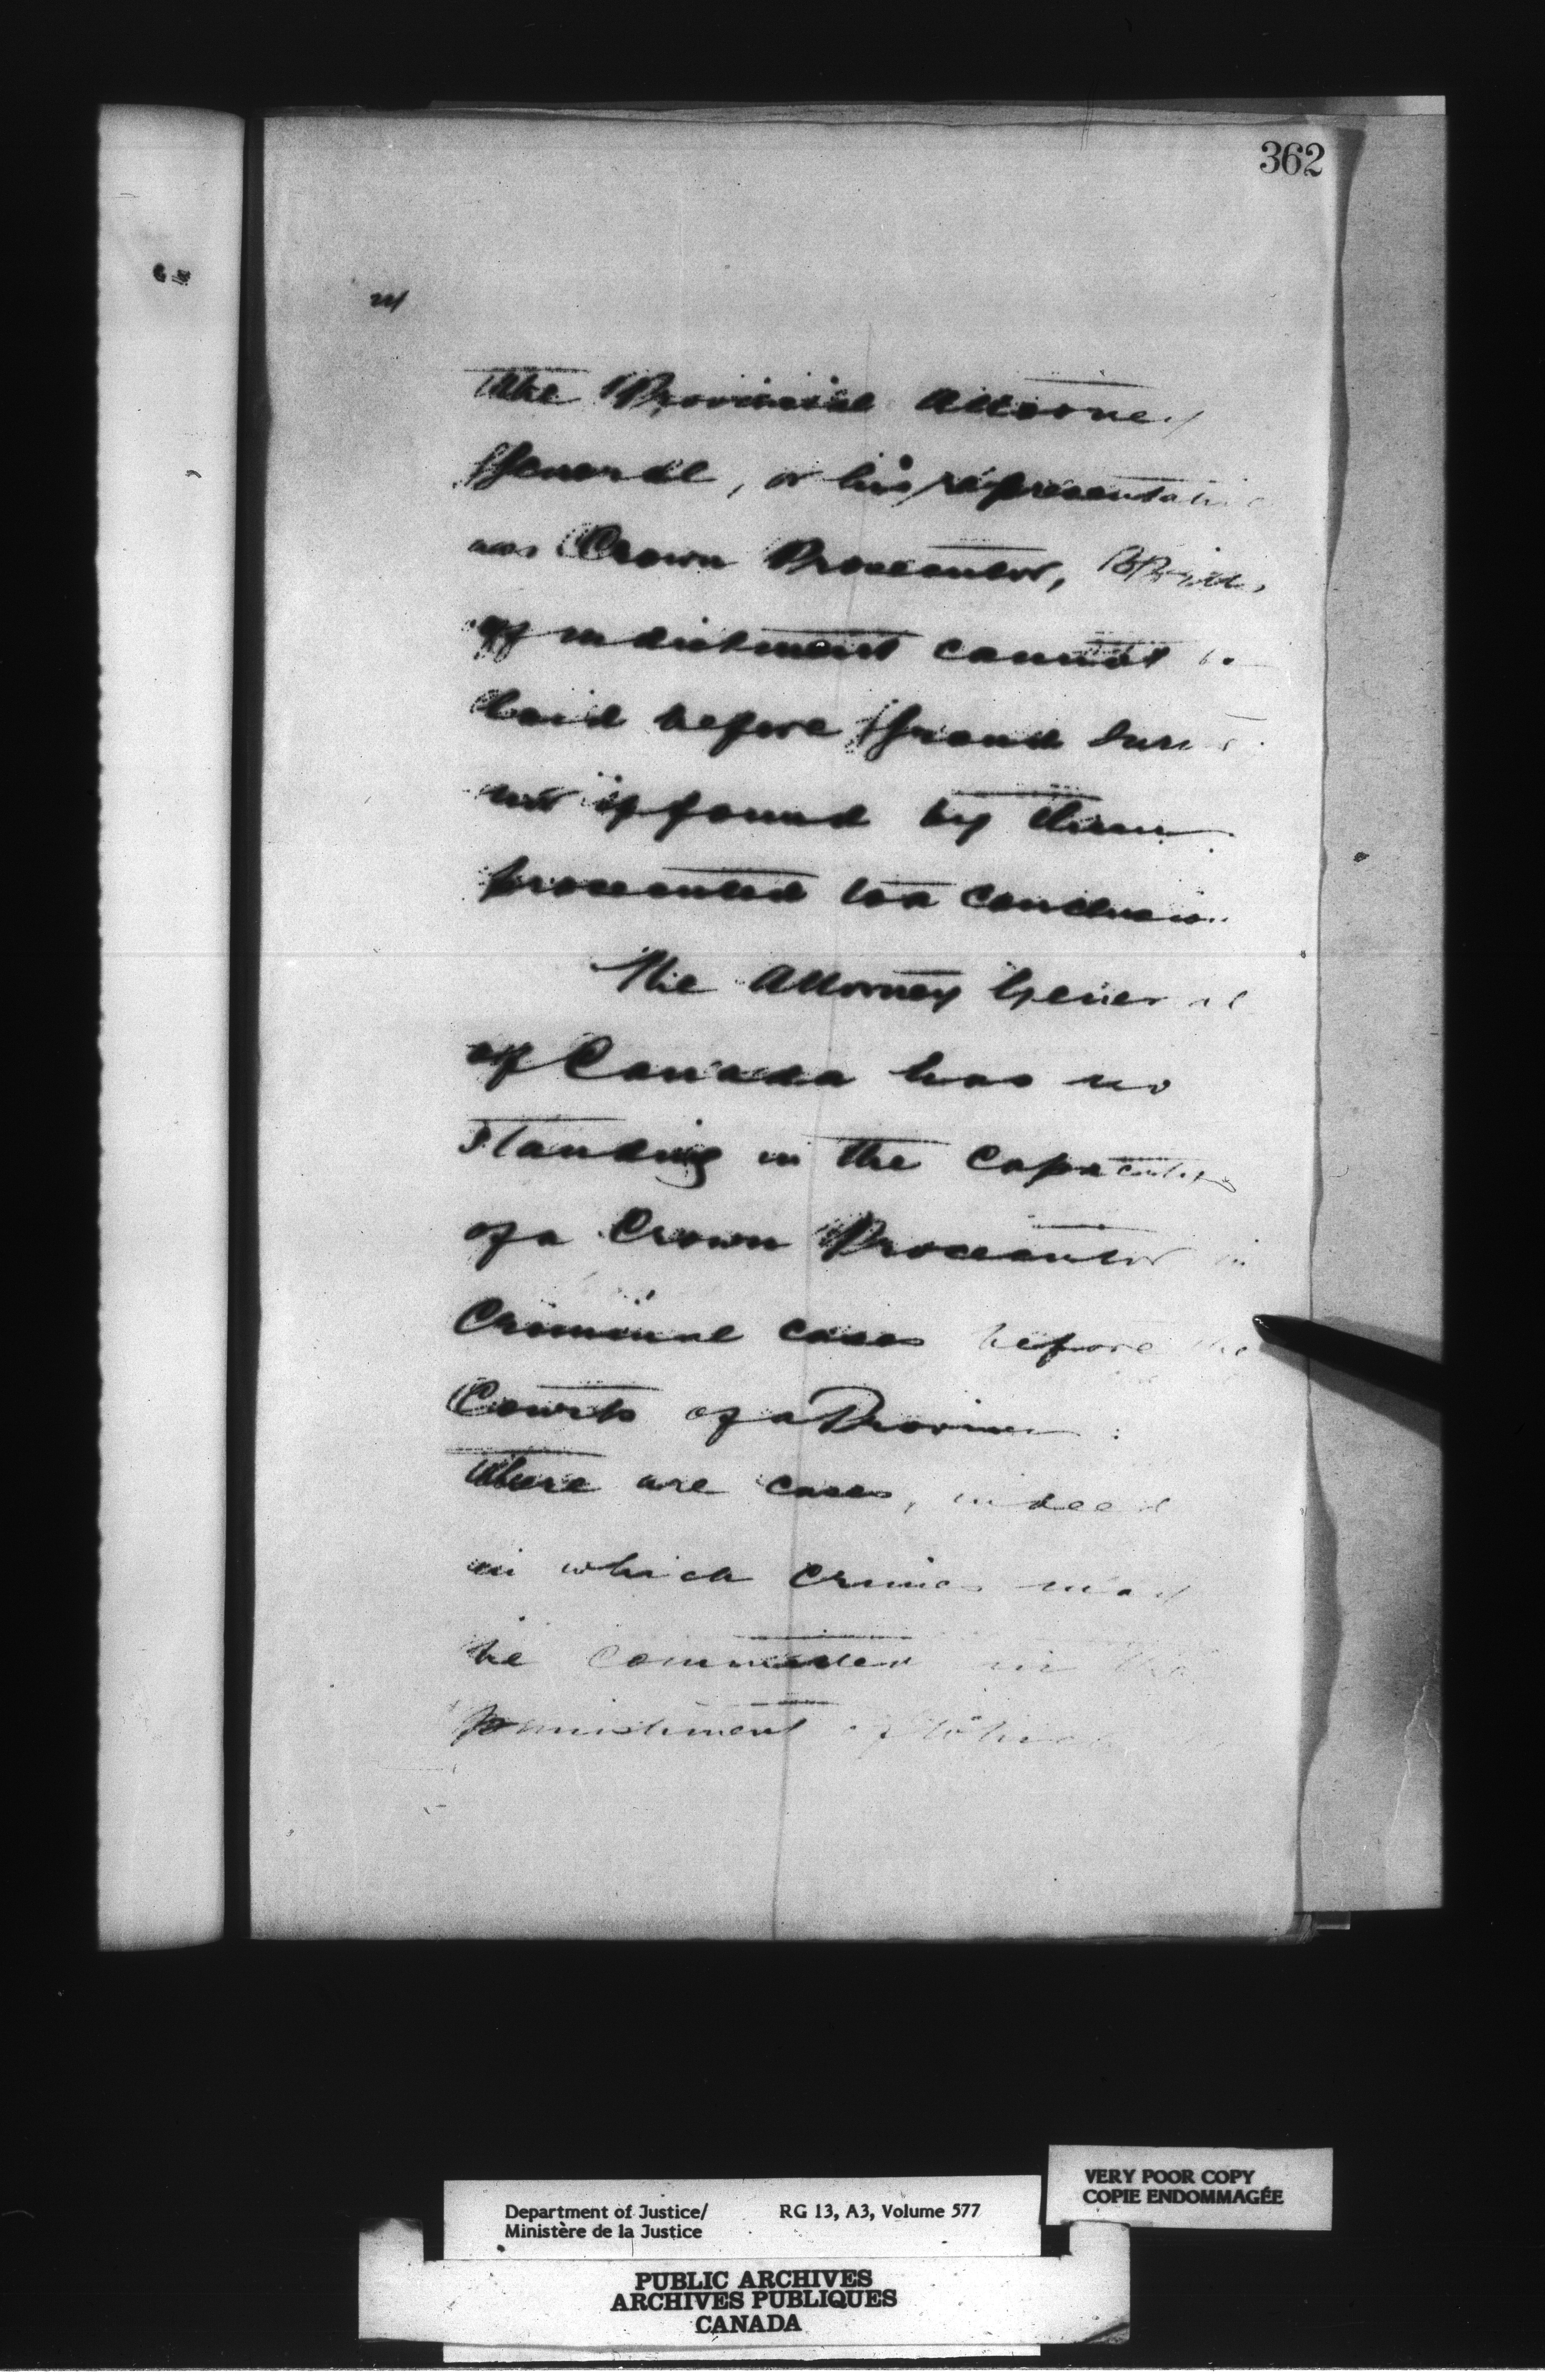 362
The Provincial Attorney
General, or his representative
as Crown Prosecutor, Bills
of indictment cannot be
laid before Grand Juries
nor if found by them
prosecuted to a conclusion.
The Attorney General
of Canada has no
standing in the capacity
of a Crown Prosecutor in
Criminal cases before the
Courts of a Province.
There are cases, indeed
in which crimes may
be committed in the
punishment of which
Department of Justice/ RG 13, A3, Volume 577
Ministère de la Justice
VERY POOR COPY
COPIE ENDOMMAGÉE
PUBLIC ARCHIVES
ARCHIVES PUBLIQUES
CANADA